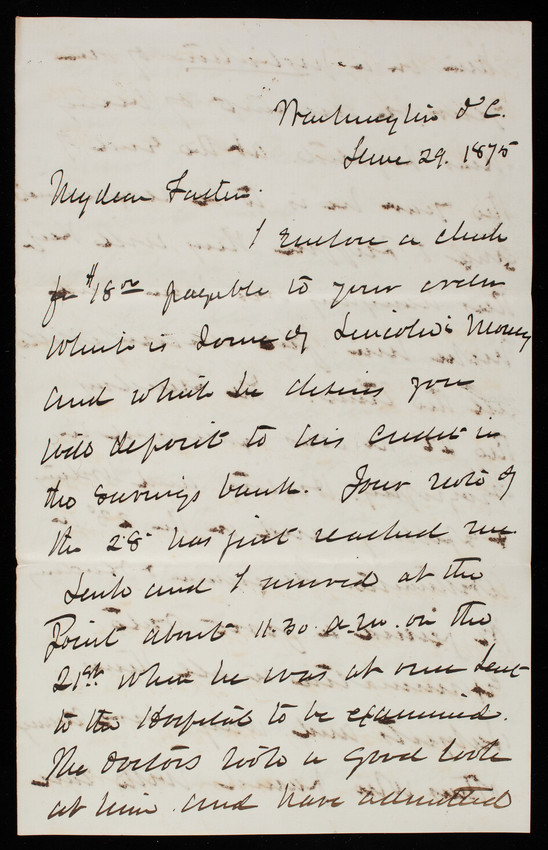 Washington D.C.
June 29. 1875
My dear Father.
I enclose a check
for $18 00 payable to your order
which is some of Lincoln's Money
and which he desires you
will deposit to his credit in
the savings bank. Your note of
the 28 has just reached me
and I arrived at the
Point about 11.30 a.m. on the
21st when he was at once sent
to the Hospital to be examined.
The Doctors took a good look
at him and have admitted